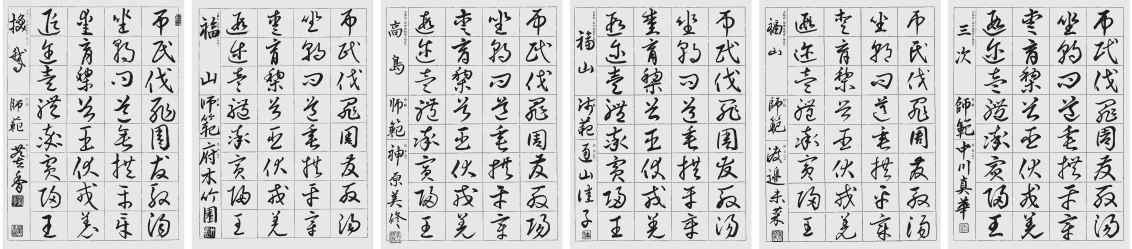 弔民伐罪周發殷湯
坐朝問道垂拱平章
愛育黎首臣伏戎羌
遐邇壹體率賓歸王
三次 師範 中川真華
弔民伐罪周發殷湯
坐朝問道垂拱平章
愛育黎首臣伏戎羌
遐邇壹體率賓歸王
福山 師範 渡邊未菜
弔民伐罪周發殷湯
坐朝問道垂拱平章
愛育黎首臣伏戎羌
遐邇壹體率賓歸王
福山 師範 通山佳子
弔民伐罪周發殷湯
坐朝問道垂拱平章
愛育黎首臣伏戎羌
遐邇壹體率賓歸王
師範 神原美
弔民伐罪周發殷湯
坐朝問道垂拱平章
愛育黎首臣伏戎羌
遐邇壹體率賓歸王
福山 師範 府木竹園
弔民伐罪周發殷湯
坐朝問道垂拱平章
愛育黎首臣伏戎羌
遐邇壹體率賓歸王
師範